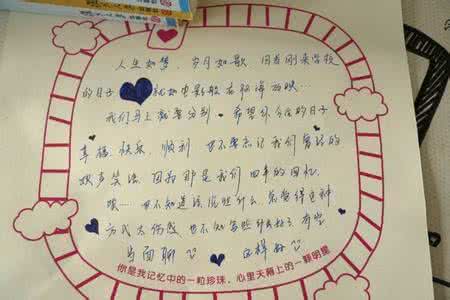 人生如梦，岁月如歌，回首刚来学校
的日子 就如电影般在脑海回映
我们马上就要分别，希望你今后的日子
幸福、快乐、顺利 也不要忘记我们曾经的
欢声笑语，因为那是我们四年的回忆，
唉…也不知道该说些什么 总觉得这种
方式太伤感 也不知多些什么好了 有空
当面聊 这样好
你是我记忆中的一粒珍珠，心里天幕上的一颗明星